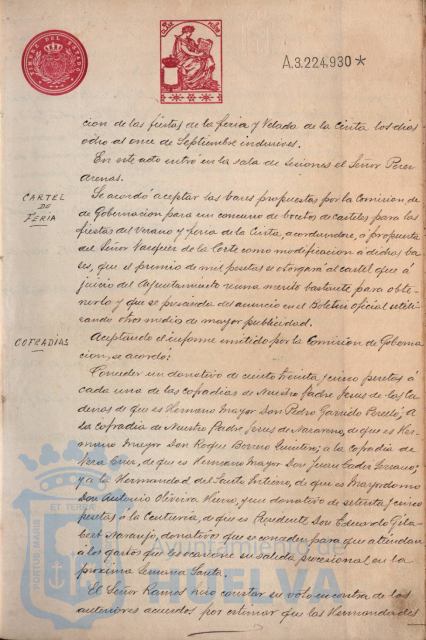 TIMBRE DEL ESTADO
A.3.224.930 *
cion de las fiestas de la feria y Velada de la Cinta los dias
ocho al once de Septiembre inclusives.
En este acto entró en la sala de sesiones el Señor Perez
Arenas.
CARTEL
DE
FERIA
Se acordó aceptar las bases propuestas por la Comision de
de Gobernacion para un concurso de bocetos de carteles para las
fiestas del Verano y feria de la Cinta, acordandose, á propuesta
del Señor Vazquez de la Corte como modificacion á dichas ba-
ses, que el premio de mil pesetas se otorgará al cartel que á
juicio del Ayuntamiento reuna merito bastante para obte-
nerlo y que se prescinda del anuncio en el Boletin oficial utili-
zando otros medios de mayor publicidad.
COFRADIAS
Aceptando el informe emitido por la Comision de Goberna
cion, se acordó:
Conceder un donativo de ciento treinta y cinco pesetas á
cada una de las cofradias de Nuestro Padre Jesus de las Ca
denas de que es Hermano Mayor Don Pedro Garrido Perelló; A
la Cofradia de Nuestro Padre Jesus de Nazareno, de que es Her-
mano Mayor Don Roque Borrero Quintero; a la cofradia de
Vera Cruz, de que es Hermano Mayor Don Juan Cadiz Serrano;
y a la Hermandad del Santo Entierro, de que es Mayordomo
Don Antonio Oliveira Hierro, y un donativo de setenta y cinco
pesetas á la Centuria, de que es Presidente Don Eduardo Gila-
bert Naranjo, donativos que se conceden para que atiendan
á los gastos que les ocasione su salida procesional en la
proxima Semana Santa.
El Señor Ramos hizo constar su voto en contra de los
anteriores acuerdos por estimar que las Hermandades
PORTUS MARIS
ET TERRAE
Ayuntamiento de
HUELVA